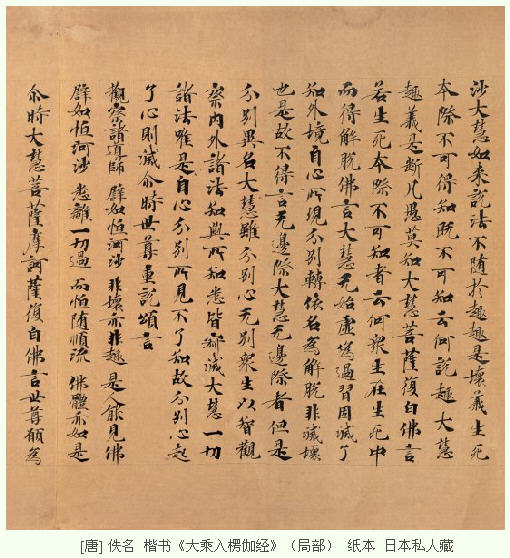 沙大慧如來說法不随於趣趣是壞義生死
本際不可得知既不可知云何說趣大慧
趣義是斷凡愚莫知大慧菩薩復白佛言
若生死本際不可知者云何衆生在生死中
而得解脫佛言大慧无始虛僞過習因滅了
知外境自心所現分別轉依名爲解脫非滅壞
也是故不得言无邊際大慧无邊際者但是
分別異名大慧離分別心无別衆生以智觀
察内外諸法知與所知悉皆寂滅大慧一切
諸法唯是自心分別所見不了知故分別心起
了心則滅尒時世尊重說頌言
觀察諸導師 譬如恒河沙 非壞亦非趣 是人能見佛
譬如恒河沙 悉離一切過 而恒随順流 佛體亦如是
尒時大慧菩薩摩訶薩復白佛言世尊願爲
[唐] 佚名 楷书《大乘入楞伽经》（局部） 纸本 日本私人藏